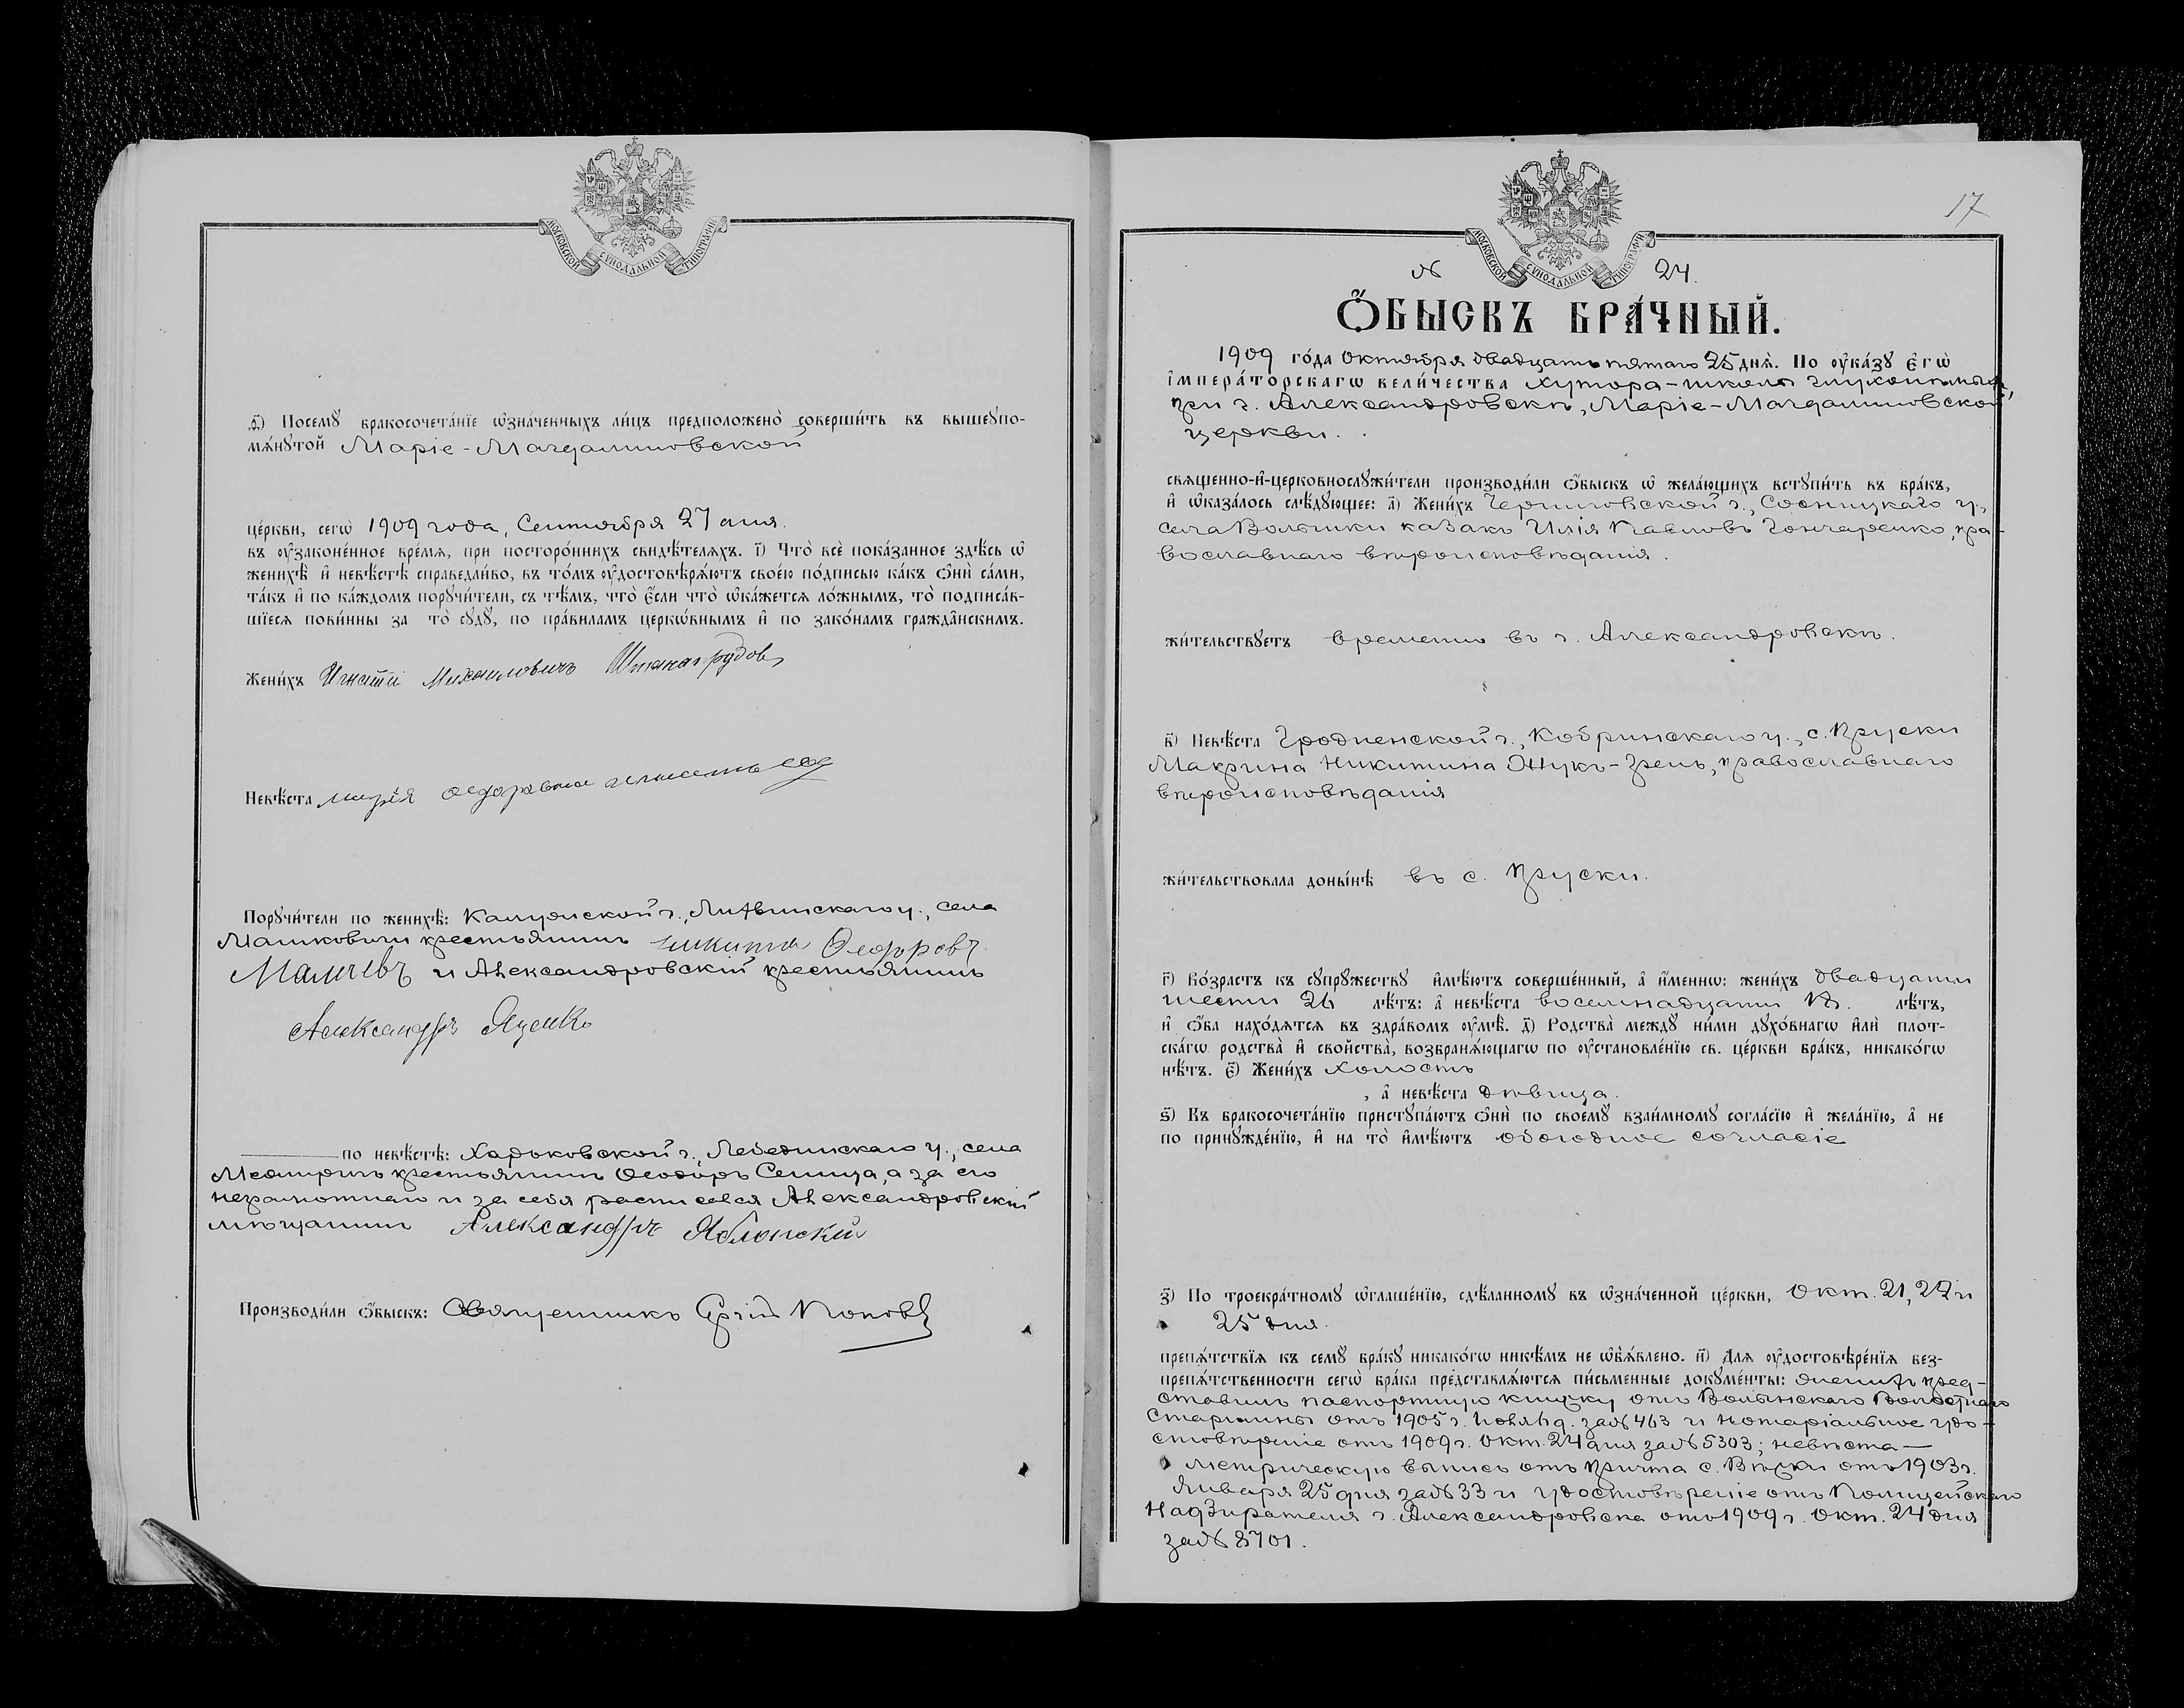 МОСКОВСКОЙ СУНОДАЛЬНОЙ ТИПОГРАФІИ
ѳ҃) Посемꙋ бракосочета́нїе ѡзна́ченныхъ ли́цъ предположено̀ соверши́ть въ вышеꙋпо-
мѧ́нꙋтой Маріе-Магдалиновской
це́ркви, сегѡ̀ 1909 года, Сентября 27 дня.
въ ᲂу҆законе́нное вре́мѧ, при посторо́ннихъ свидѣ́телѧхъ. і҃) Что̀ всѐ пока́занное здѣ́сь ѡ҆
женихѣ̀ и҆ невѣ́стѣ справедли́во, въ то́мъ ᲂу҆достовѣрѧ́ютъ свое́ю по́дписью ка́къ ѻ҆нѝ са́ми,
та́къ и҆ по ка́ждомъ порꙋчи́тели, съ тѣ́мъ, что̀ є҆́сли что̀ ѡ҆ка́жетсѧ ло́жнымъ, то̀ подписа́в-
шїесѧ пови́нны за то̀ сꙋдꙋ̀, по пра́виламъ церкѡ́внымъ и҆ по зако́намъ гражда̑нскимъ.
Жени́хъ Игнатий Михаиловичъ
Невѣ́ста Мария Федоровна
Порꙋчи́тели по женихѣ̀: Калужской г., Лихвинскаго у., села
Машковичи крестьянинъ Никита Федоровъ
и Александровскій крестьянинъ
Александръ Яценко
по невѣ́стѣ: Харьковской г., Лебединскаго у., села
Межиричъ крестьянинъ Ѳеодоръ Сеница, а за его
неграмотнаго и за себя расписался Александровскій
мѣщанинъ Александръ Яблонскій
Производи́ли ѻ҆́быскъ: Священникъ Сергій Поповъ
17
МОСКОВСКОЙ СУНОДАЛЬНОЙ ТИПОГРАФІИ
№ 24.
Ѻ҆́БЫСКЪ БРА́ЧНЫЙ.
1909 го́да Октября двадцать пятаго 25 днѧ̀. По ᲂу҆ка́зꙋ є҆гѡ̀
і҆мпера́торскагѡ вели́чества хутора-школы глухонѣмыхъ,
при г. Александровскѣ, Маріе-Магдалиновской
церкви.
свѧщенно-и҆-церковнослꙋжи́тели производи́ли ѻ҆́быскъ ѡ҆ жела́ющихъ встꙋпи́ть въ бра́къ,
и҆ ѡ҆каза́лось слѣ́дꙋющее: а҃) Жени́хъ Черниговской г., Сосницкаго у.,
села Волынки казакъ Илія Павловъ Гончаренко, пра-
вославнаго вѣроисповѣданія.
жи́тельствꙋетъ временно въ г. Александровскѣ.
в҃) Невѣ́ста Гродненской г., Кобринскаго у., с. Пруски
Макрина Никитина Жукъ-Грень, православнаго
вѣроисповѣданія
жи́тельствовала доны́нѣ въ с. Пруски.
г҃) Во́зрастъ къ сꙋпрꙋ́жествꙋ и҆мѣ́ютъ соверше́нный, а҆ и҆́меннѡ: жени́хъ двадцати
шести 26 лѣ́тъ: а҆ невѣ́ста восемнадцати 18. лѣ́тъ,
и҆ ѻ҆́ба нахо́дѧтсѧ въ здра́вомъ ᲂу҆мѣ̀. д҃) Родства̀ междꙋ ни́ми дꙋхо́внагѡ и҆лѝ плот-
ска́гѡ родства̀ и҆ сво́йства̀, возбранѧ́ющагѡ по ᲂу҆становле́нїю св. це́ркви бра́къ, никако́гѡ
нѣ́тъ. є҃) Жени́хъ холостъ
, а҆ невѣ́ста дѣвица.
ѕ҃) Къ бракосочета́нїю пристꙋпа́ютъ ѻ҆нѝ по своемꙋ̀ взаи́мномꙋ согла́сїю и҆ жела́нїю, а҆ не
по принꙋжде́нїю, и҆ на то̀ и҆мѣ́ютъ обоюдное согласіе
з҃) По троекра́тномꙋ ѡ҆глаше́нїю, сдѣ́ланномꙋ въ ѡ҆зна́ченной це́ркви, Окт. 21, 22 и
25 дня.
препѧ́тствїѧ къ семꙋ̀ бра́кꙋ никако́гѡ никѣ́мъ не ѡ҆б̾ѧ́влено. и҃) Длѧ ᲂу҆достовѣре́нїѧ без-
препѧ́тственности сегѡ̀ бра́ка представлѧ́ютсѧ пи́сьменные докꙋме́нты: женихъ пред-
ставилъ паспортную книжку отъ Волынскаго Волостнаго
Старшины отъ 1905 г. Ноября 6 д. за № 463 и нотаріальное удо-
стовѣреніе отъ 1909 г. Окт. 24 дня за № 5303; невѣста —
метрическую выпись отъ причта с. Вѣжки отъ 1903 г.
Января 25 дня за № 33 и удостовѣреніе отъ Полицейскаго
Надзирателя г. Александровска отъ 1909 г. Окт. 24 дня
за № 8701.